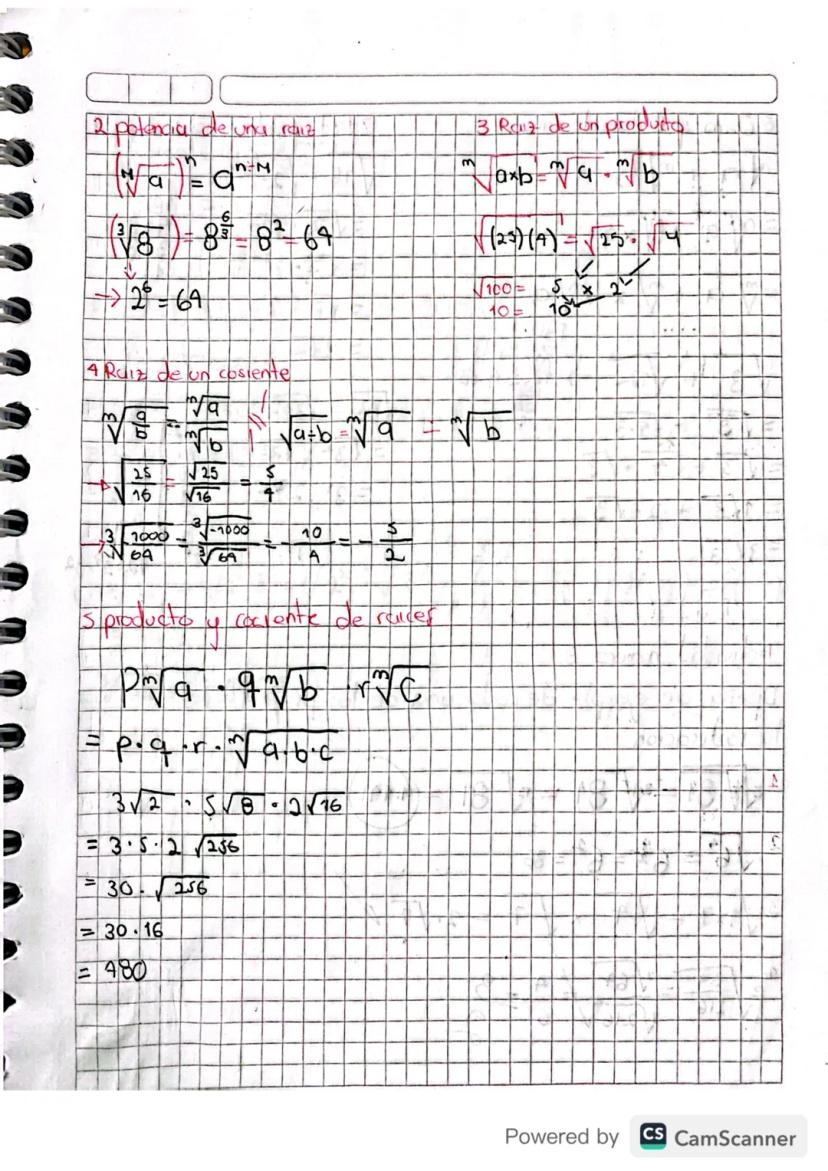 2 potencia de una raiz
(ᴹ√a)ⁿ = aⁿ÷ᴹ
(³√8) = 8^6/3 = 8² = 64
→ 2⁶ = 64
3 Raiz de un producto
ᵐ√a×b = ᵐ√a · ᵐ√b
√(25)(4) = √25 · √4
√100 = 5 x 2
10 = 10
4 Raiz de un cosiente
ᵐ√a/b = ᵐ√a/ᵐ√b // √a÷b = ᵐ√a = ᵐ√b
→ √25/16 = √25/√16 = 5/4
→ ³√1000/64 = ³√-1000/³√64 = - 10/4 = - 5/2
5 producto y cociente de raices
pᵐ√a · qᵐ√b · rᵐ√c
= p·q·r·ᵐ√a·b·c
3√2 · 5√8 · 2√16
= 3·5·2 √256
= 30·√256
= 30·16
= 480
Powered by CS CamScanner